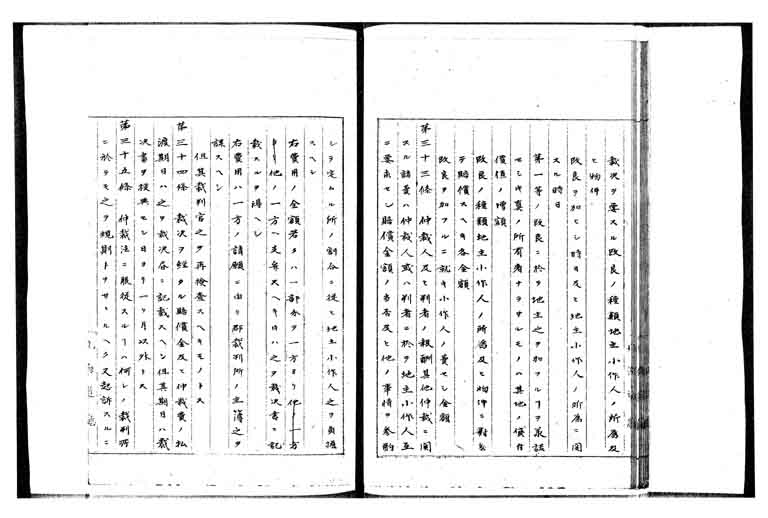 裁決ヲ要スル改良ノ種類地主小作人ノ所為及
ヒ物件
改良ヲ加ヒシ時日及ヒ地主小作人ノ所為ニ関
スル時日
第一等ノ改良ニ於テ地主之ヲ加フルヿヲ承諾
セシ代真ノ所有者ナラサルモノハ其地ノ価直
価値ノ増額
改良ノ種類地主小作人ノ所為及ヒ物件ニ対シ
テ賠償スヘキ各金額
改良ヲ加フルニ就キ小作人ノ費セシ金額
第三十三条 仲裁人及ヒ判者ノ報酬其他仲裁ニ関
スル諸費ハ仲裁人或ハ判者ニ於テ地主小作人互
ニ要求セシ賠償金額ノ当否及ヒ他ノ事情ヲ参酌
シテ定ムル所ノ割合ニ従ヒ地主小作人之ヲ負担
スヘシ
右費用ノ金額若クハ一部分ヲ一方ヨリ他ノ一方
ヨリ他ノ一方ヘ支弁スヘキ日ハ之ヲ裁決書ニ記
載スルヲ得ヘシ
右費用ハ一方ノ請願ニ由リ郡裁判所ノ主簿之ヲ
課スヘシ
但其裁判官之ヲ再検査スヘキモノトス
第三十四条 裁決ヲ経タル賠償金及ヒ仲裁費ノ払
渡期日ハ之ヲ裁決書ニ記載スヘシ但其期日ハ裁
決書ヲ授与セシ日ヨリ一ヶ月以外トス
第三十五条 仲裁法ニ服従スルヿハ何レノ裁判所
ニ於テモ之ヲ規則トサセルヘク又起訴スルニ